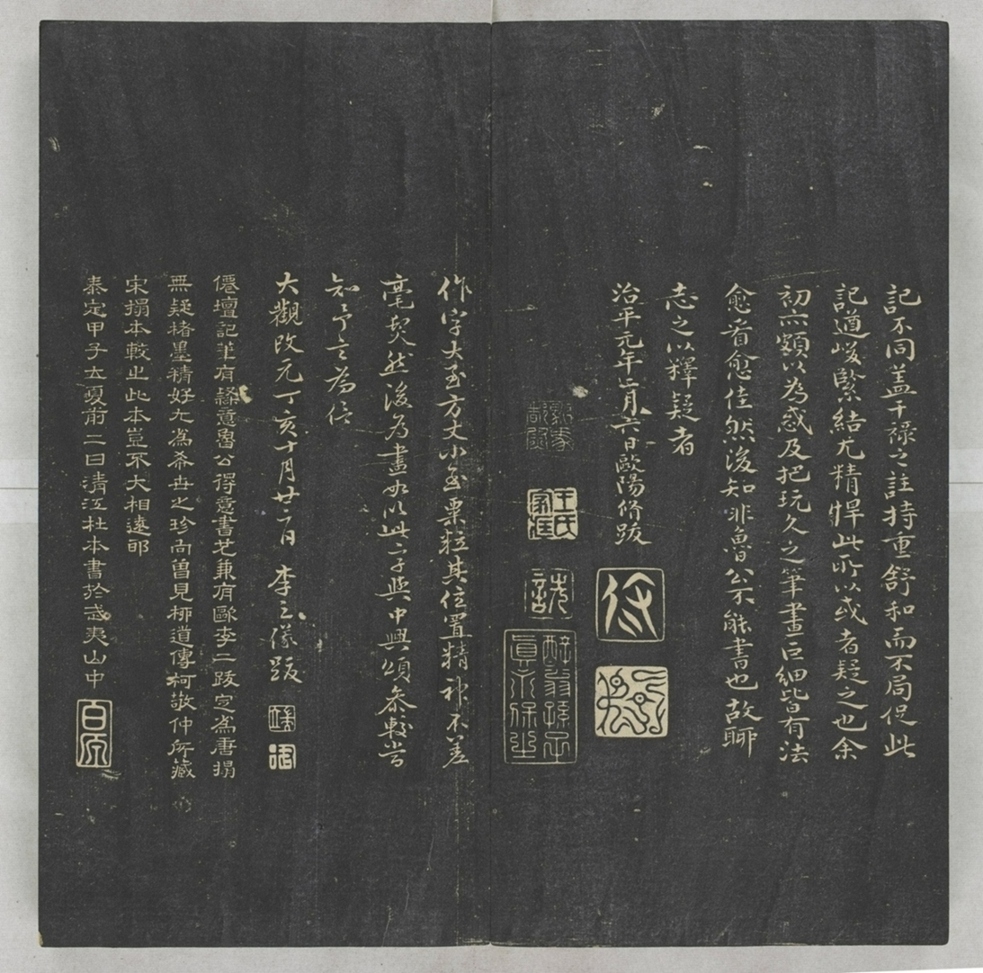 記不同蓋干祿之註持重舒和而不局促此
記遒峻緊結尤精悍此所以或者疑之也余
初亦頗以為惑及把玩久之筆畫巨細皆有法
愈看愈佳然後知非魯公不能書也故聊
志之以釋疑者
治平元年二月六日歐陽脩跋
脩
王氏家匡
作字大至方丈小至粟粒其位置精神不差
毫髮然後為盡如以此字與中興頌叅較當
知予言為信
大觀改元丁亥十月廿二日 李之儀跋
僊壇記筆有隸意魯公得意書也兼有歐李二跋定為唐搨
無疑楮墨精好尤為希世之珍向曾見栁道傳柯敬仲所藏
宋搨本較之此本豈不大相遠耶
泰定甲子立夏前二日清江杜本書於武夷山中